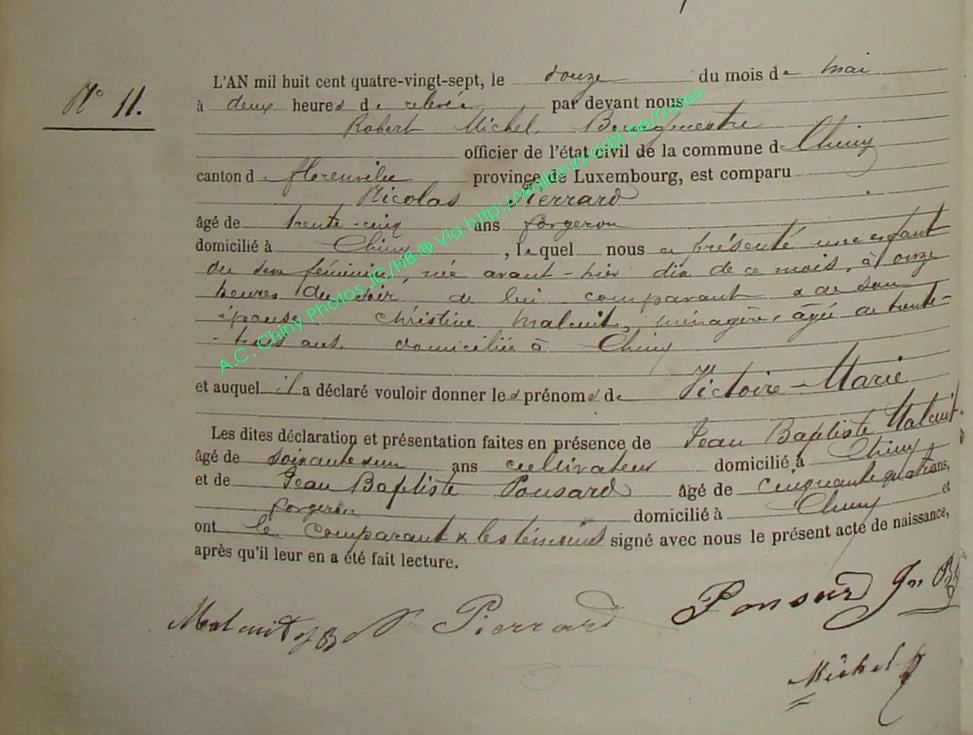 N° 11.
L'AN mil huit cent quatre-vingt-sept, le douze du mois de mai
à deux heures de relevée par devant nous
Robert Michel, Bourgmestre
officier de l'état civil de la commune de Chiny
canton de florenville province de Luxembourg, est comparu
Nicolas Pierrard
âgé de trente-cinq ans forgeron
domicilié à Chiny, lequel nous a présenté une enfant
du sexe féminin, née avant-hier dix de ce mois, à onze
heures du soir, de lui comparant & de son
épouse Christine Maleuit, ménagère, âgée de trente-
-trois ans, domiciliée à Chiny
et auquel il a déclaré vouloir donner les prénoms de Victoire-Marie
Les dites déclaration et présentation faites en présence de Jean Baptiste Maleuit
âgé de soixante un ans cultivateur domicilié à Chiny
et de Jean Baptiste Ponsard âgé de cinquante quatre ans,
forgeron domicilié à Chiny et
ont le comparant & les témoins signé avec nous le présent acte de naissance,
après qu'il leur en a été fait lecture.
Maleuit J B N Pierrard Ponsard Jn Bte
Michel R
A.C. Chiny Photos JC/HB ® Via http://wallonia-asbl.be/actes